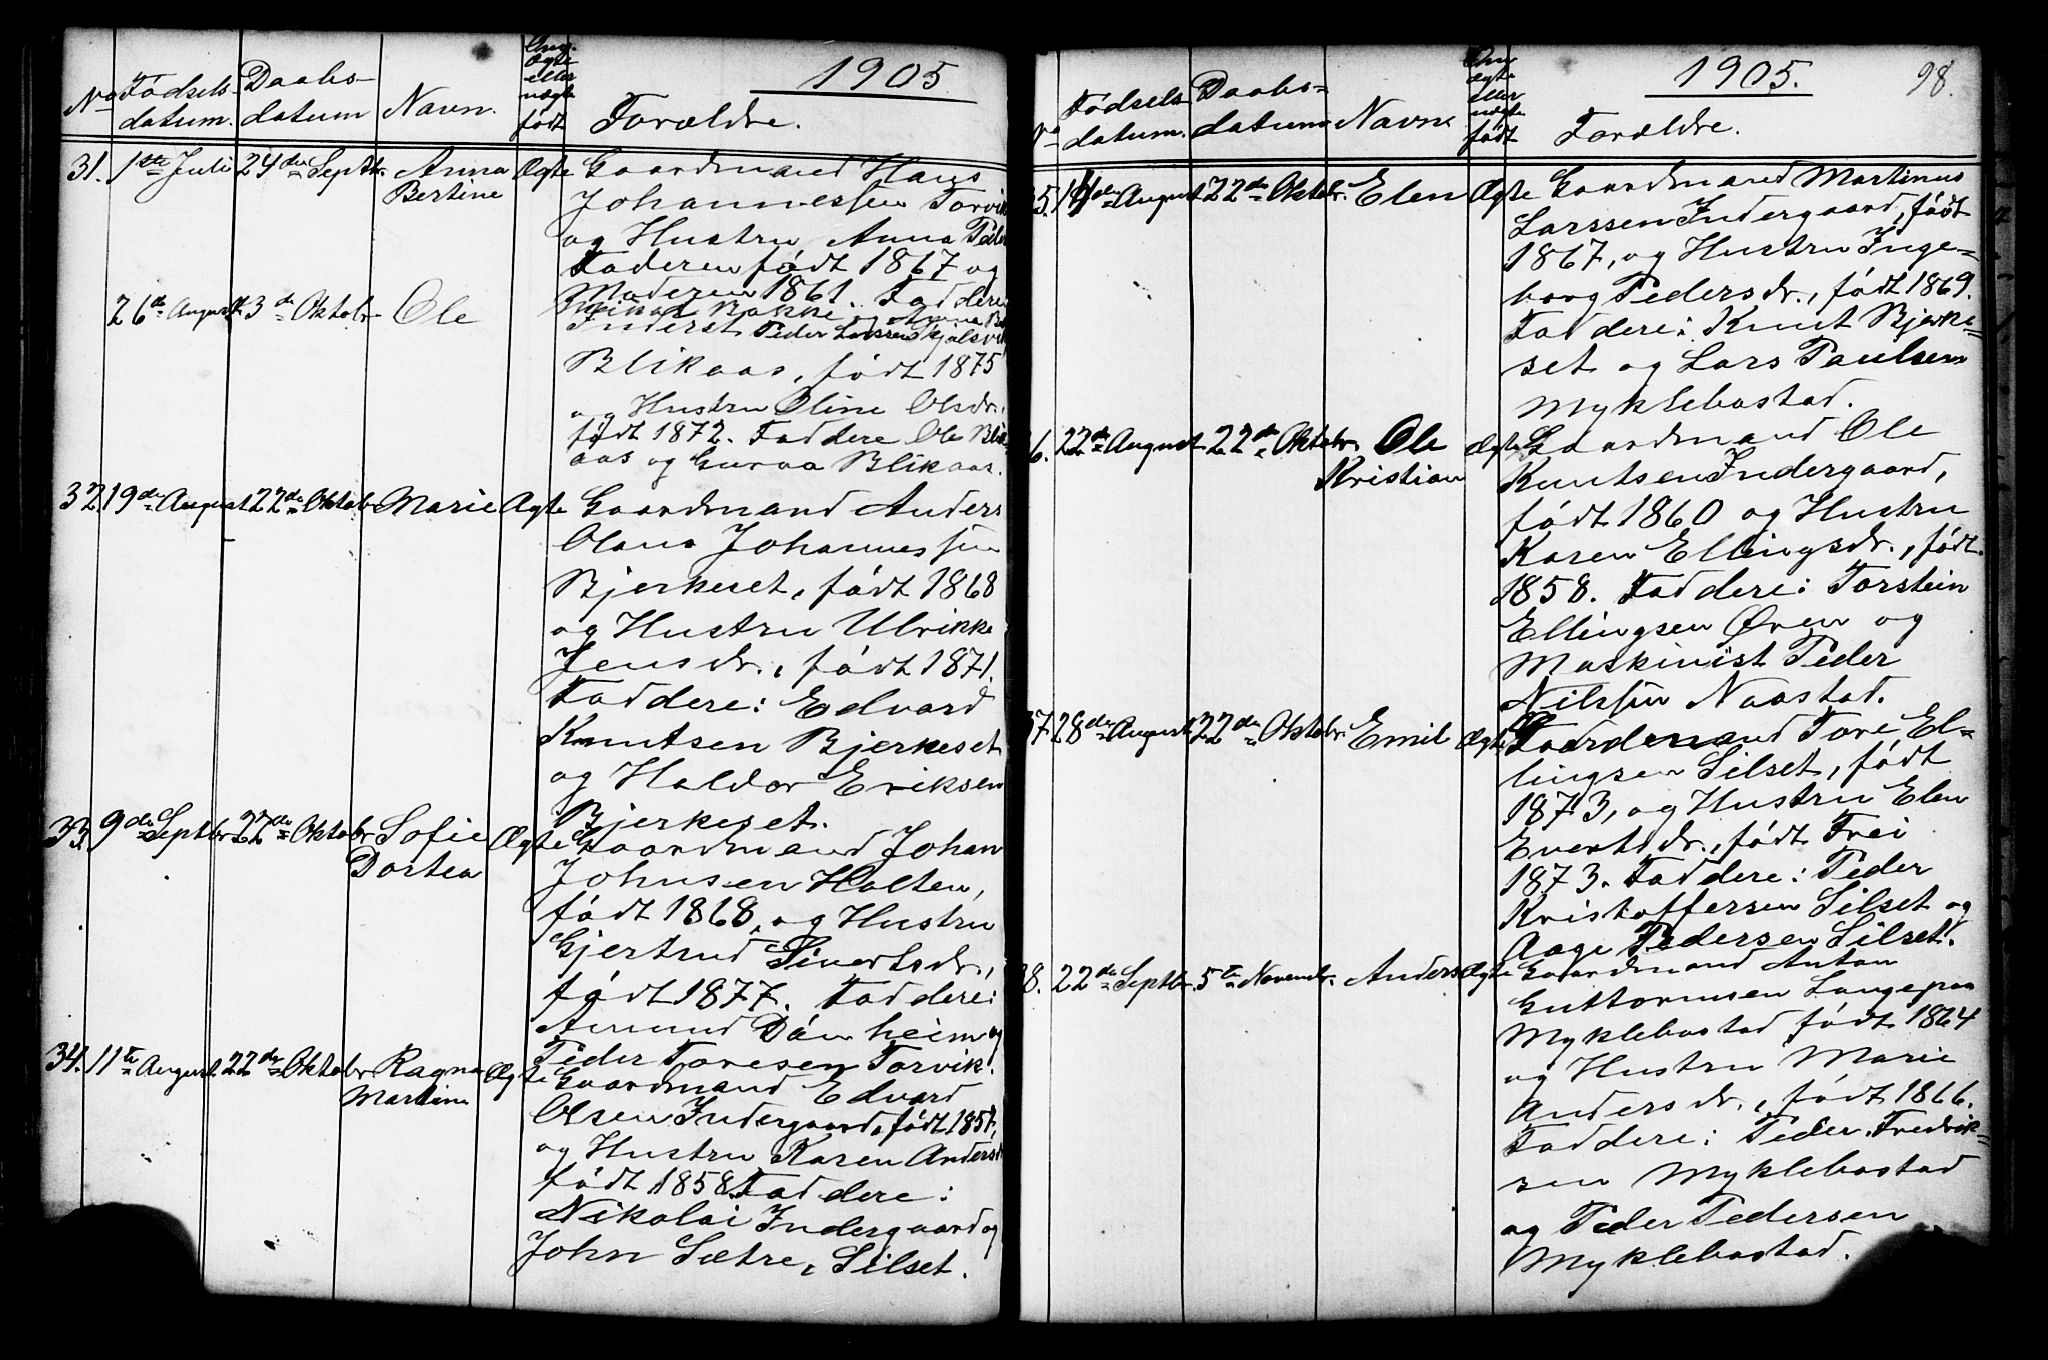 1905
No
Fødsels-
datum.
Daabs-
datum
Navn.
Ang.
ægte
eller
uægte
født
Forældre.
31. 1ste Juli 24de Septbr. Anna Ægte Gaardmand Hans
Bertine Johannessen Torvik
og Hustru Anna Peder
Faderen født 1867 og
Moderen 1861. Faddere
Bakke og Anna
26de August 3de Oktobr. Ole Inderst Peder Larssen Skjølsvik
Blikaas, født 1875
og Hustru Oline Olsdr.
født 1872. Faddere Ole Blik
aas og Guroa Blikaas.
32. 19de August 22de Oktobr Marie Ægte Gaardmand Anders
Olaus Johannessen
Bjerkeset, født 1868
og Hustru Ulrikke
Jensdr., født 1871.
Faddere: Edvard
Knutsen Bjerkeset
og Haldor Eriksen
Bjerkeset.
33. 9de Septbr 22de Oktobr Sofie Ægte Gaardmand Johan
Dortea Johnsen Holten,
født 1868, og Hustru
Gjertrud Sivertsdr.,
født 1877. Faddere:
Amund Dánheim og
Peder Toresen Torvik.
34. 11te August 22de Oktobr Ragna Ægte Gaardmand Edvard
Martine Olsen Indergaard, født 1857,
og Hustru Karen Andersd
født 1858. Faddere:
Nikolai Indergaard og
John Sætre, Silset.
1905. 98.
No
Fødsels
datum.
Daabs-
datum
Navn
Ang
ægte
eller
uægte
født
Forældre.
35. 14de August 22de Oktobr. Elen Ægte Gaardmand Martinus
Larssen Indergaard, født
1867, og Hustru Inge-
borg Pedersdr., født 1869.
Faddere: Knut Bjerke-
set og Lars Paulsen
Myklebostad.
36. 22de August 22de Oktobr. Ole Ægte Gaardmand Ole
Kristian Knutsen Indergaard,
født 1860 og Hustru
Karen Ellingsdr., født
1858. Faddere: Torstein
Ellingsen Øren og
Maskinist Peder
Nilssen Naastad.
37. 28de August 22de Oktobr. Emil Ægte Gaardmand Tore El-
lingsen Silset, født
1873, og Hustru Elen
Evertsdr., født Frei
1873. Faddere: Peder
Kristoffersen Silset og
Aage Pedersen Silset.
38. 22de Septbr. 5te Novembr. Anders Ægte Gaardmand Anton
Guttormsen Langepaa
Myklebostad født 1864
og Hustru Marie
Andersdr., født 1866.
Faddere: Peder Fredrik-
sen Myklebostad
og Peder Pedersen
Myklebostad.